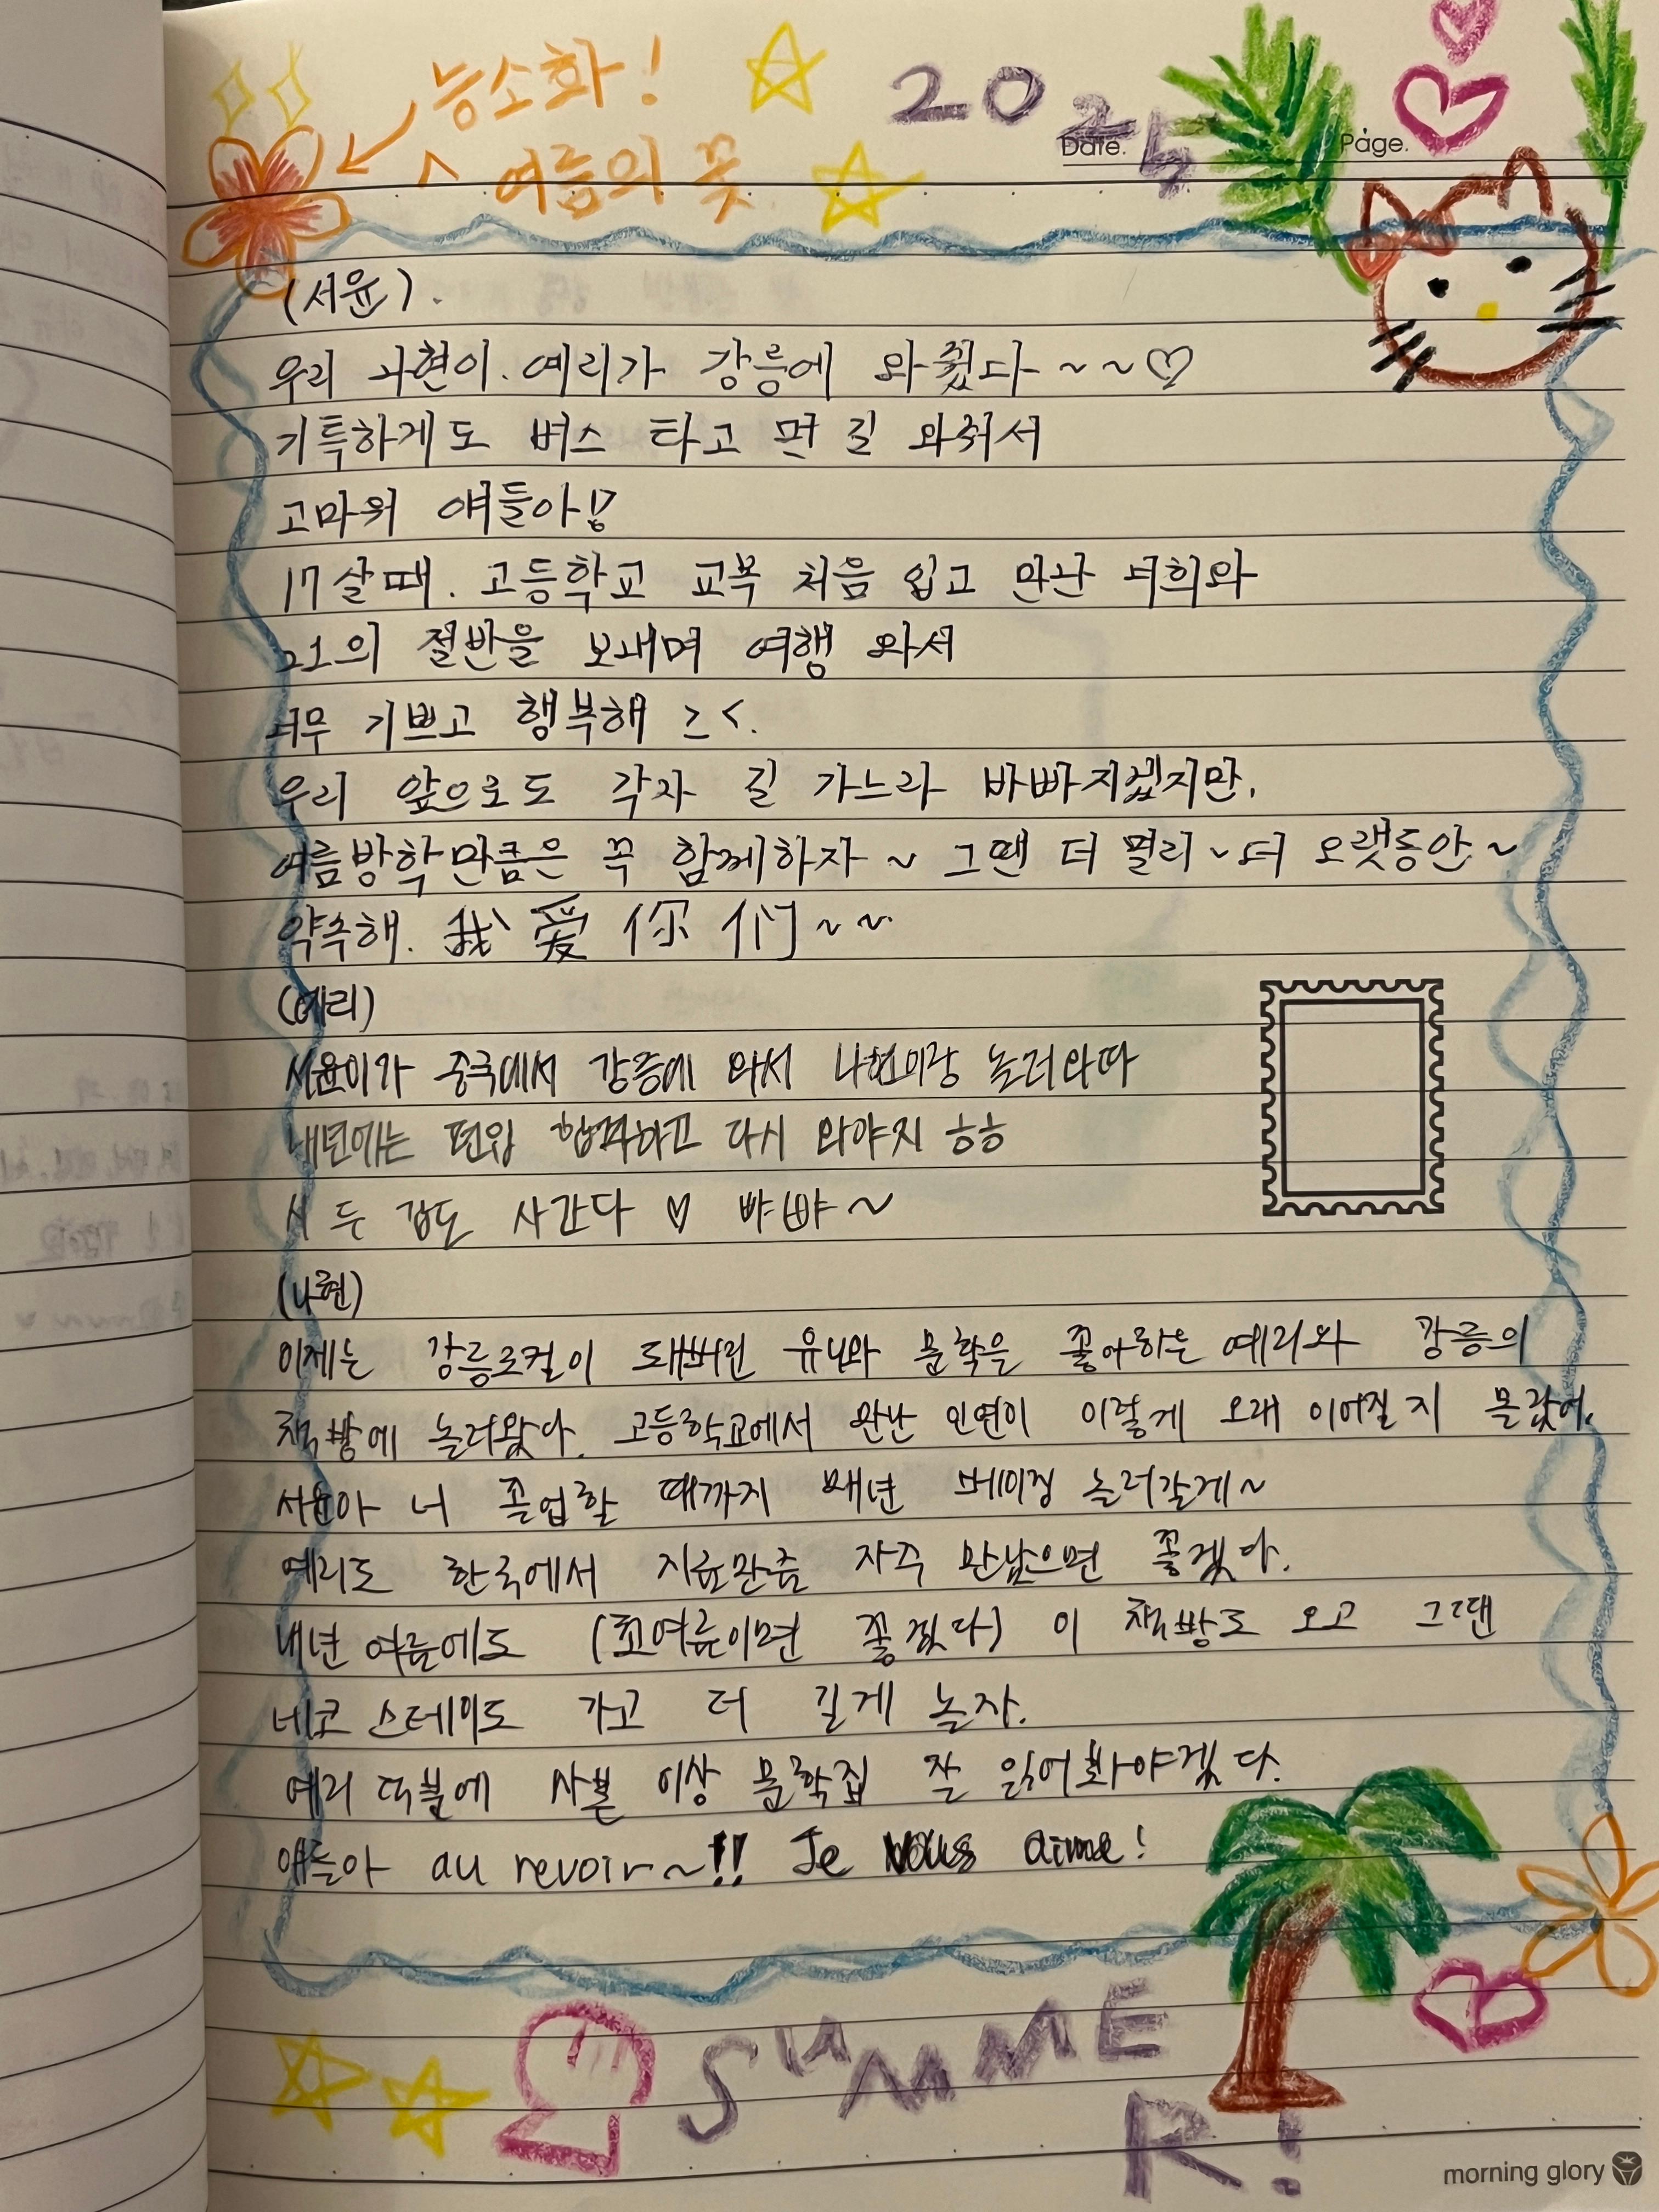 능소화!
^ 여름의 꽃
2025
Date.
Page.
(서윤).
우리 나현이. 예리가 강릉에 와줬다~~♡
기특하게도 버스 타고 먼 길 와줘서
고마워 얘들아!!
17살때. 고등학교 교복 처음 입고 만난 너희와
21의 절반을 보내며 여행 와서
너무 기쁘고 행복해 ><.
우리 앞으로도 각자 길 가느라 바빠지겠지만,
여름방학만큼은 꼭 함께하자~ 그땐 더 멀리~더 오랫동안~
약속해. 我爱你们~~
(예리)
서윤이가 중국에서 강릉에 와서 나현이랑 놀러와따
내년에는 편입 합격하고 다시 와야지 ㅎㅎ
시 두 감도 사간다 ♡ 뱌뱌~
(나현)
이제는 강릉로컬이 돼버린 유니와 문학을 좋아하는 예리와 강릉의
책방에 놀러왔다. 고등학교에서 만난 인연이 이렇게 오래 이어질 지 몰랐어.
서윤아 너 졸업할 때까지 매년 베이징 놀러갈게~
예리도 한국에서 지금만큼 자주 만났으면 좋겠다.
내년 여름에도 (초여름이면 좋겠다) 이 책방도 오고 그땐
네코 스테이도 가고 더 길게 놀자.
예리 덕분에 사본 이상 문학집 잘 읽어봐야겠다.
얘들아 au revoir~!! Je vous aime!
SUMMER!
morning glory